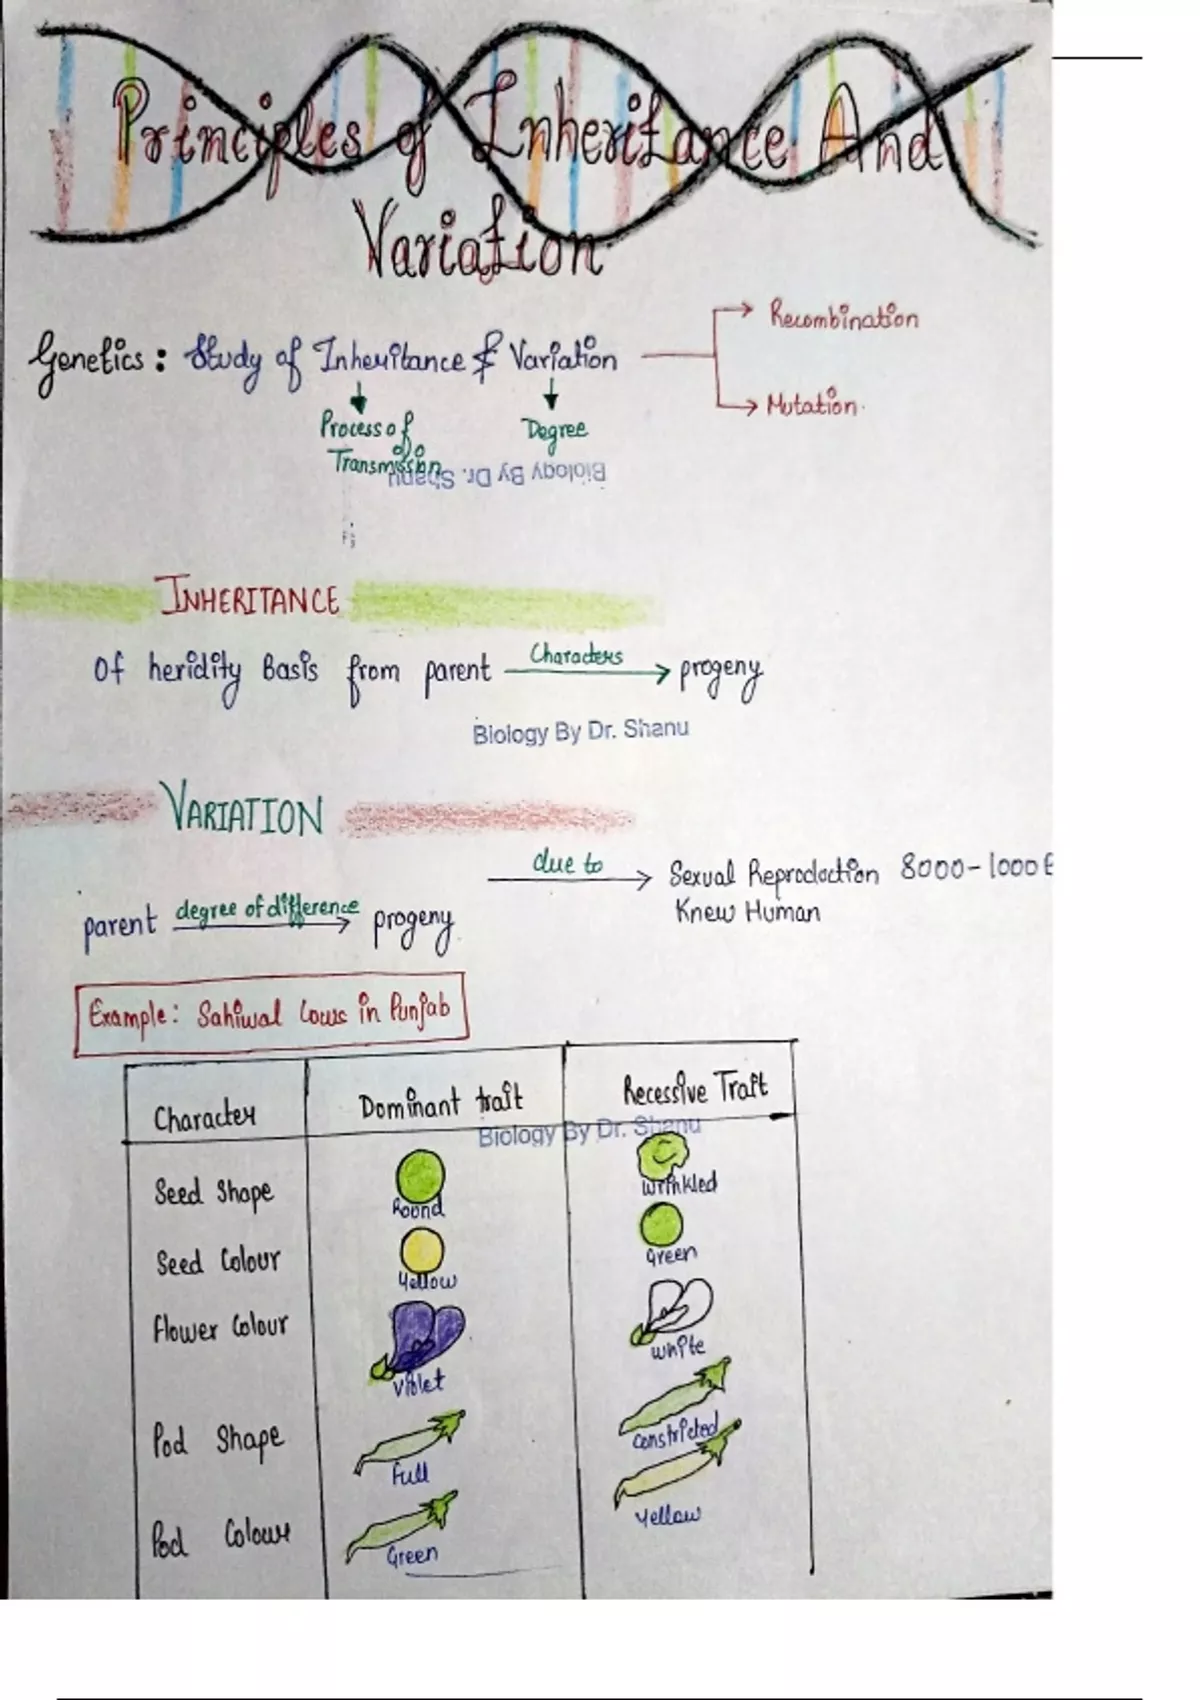 Principles of Inheritance And
Variation
Recombination
Genetics: Study of Inheritance & Variation
Mutation.
Process of
Transmission
Degree
Biology By Dr. Shanu
INHERITANCE
Of heridity Basis from parent Characters progeny
Biology By Dr. Shanu
VARIATION
due to Sexual Reproduction 8000-1000
Knew Human
parent degree of difference progeny
Example: Sahiwal Cows in Punjab
Character Dominant trait Recessive Trait
Biology By Dr. Shanu
Seed Shape Round Wrinkled
Seed Colour Yellow Green
Flower Colour Violet White
Pod Shape Full Constricted
Pod Colour Green Yellow